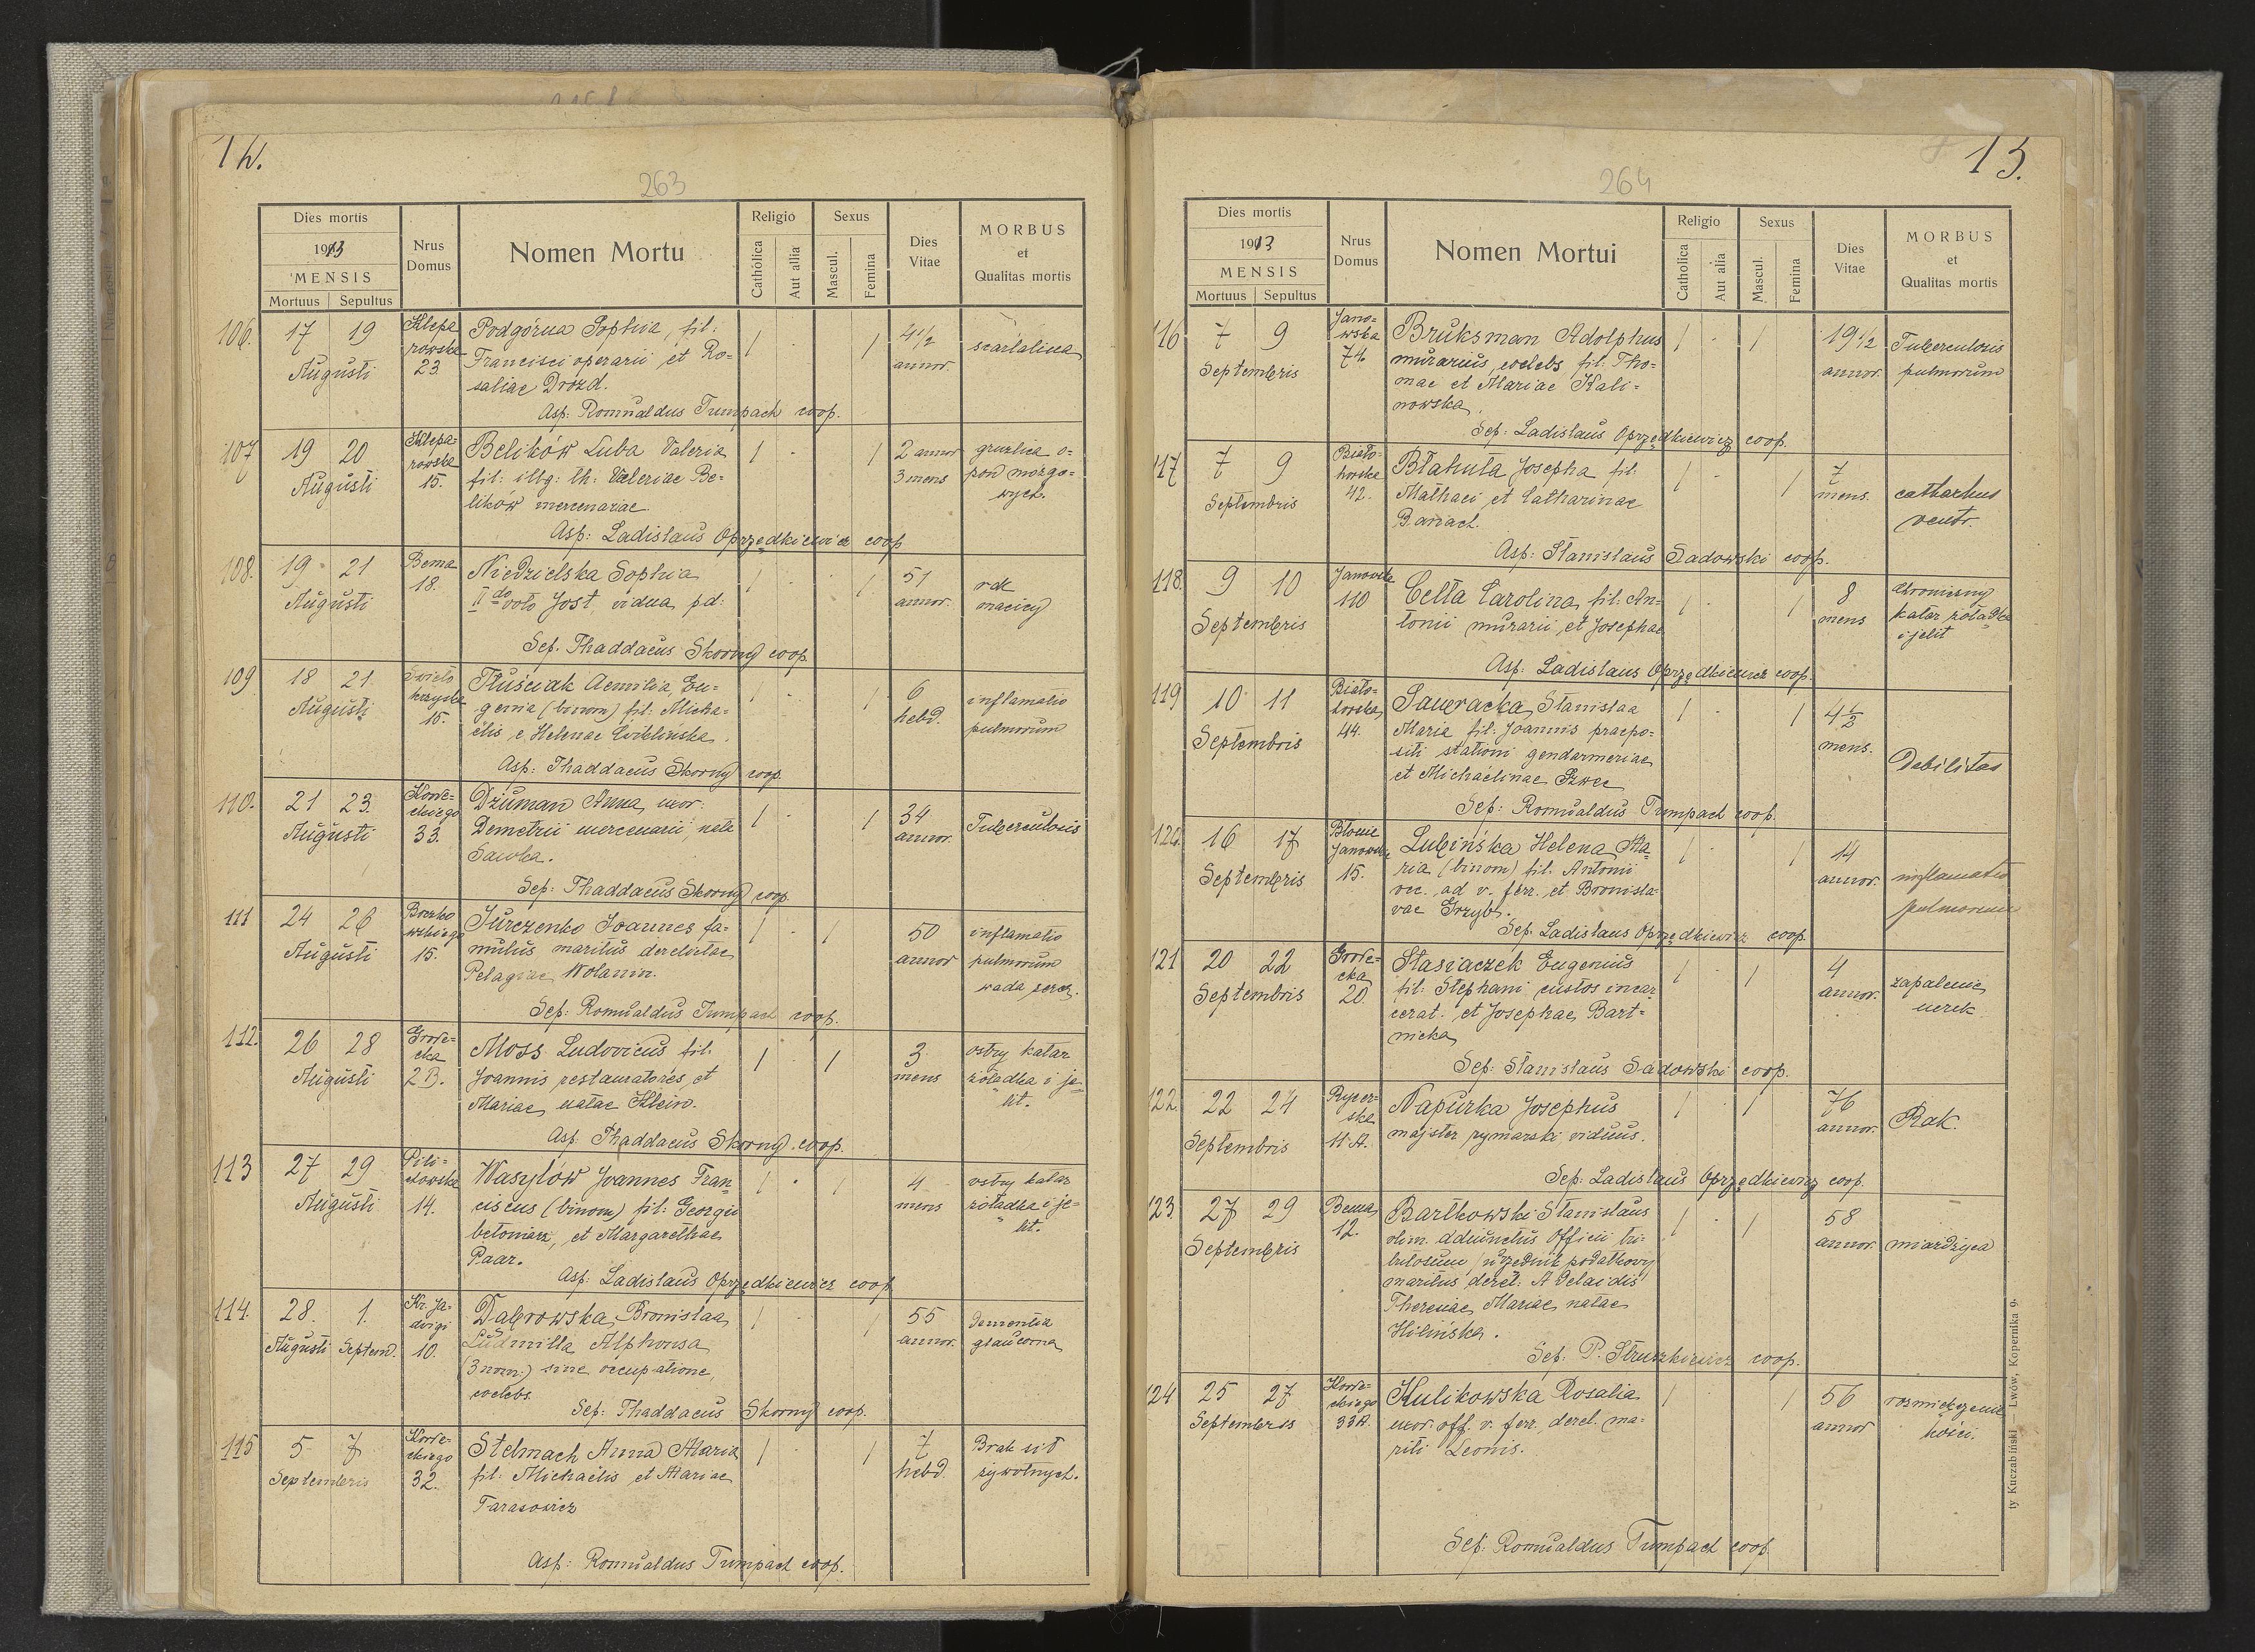 14.
263
Dies mortis
1913
MENSIS
Mortuus Sepultus
Nrus Domus
Nomen Mortu
Religio
Catholica
Aut allia
Sexus
Mascul.
Femina
Dies Vitae
MORBUS
et
Qualitas mortis
106. 17 19 Klepa Podgórna Sophia, fil: 1 1 4 1/2 scarlatina
Augusti rowska Francisci operarii et Ro= annor.
23. saliae Drozd.
Asp: Romualdus Tumpach coop.
107 19 20 Klepa= Belików Luba Valeria 1 1 2 annor gruzlica o=
Augusti rowska fil: illeg: th: Valeriae Be= 3 mens pon mózgo=
15. lików mercenariae. wych.
Asp: Ladislaus Oprzędkiewicz coop
108. 19 21 Bema Niedzielska Sophia 1 1 51 rak
Augusti 18. II do voto Jost, vidua, pd: annor. macicy
Sep. Thaddaeus Skorny coop.
109 18 21 Święto Tłuściak Aemilia, Eu= 1 1 6 inflamatio
Augusti krzyska genia (binom) fil: Micha= hebd. pulmorum
15. ëlis e, Helenae Ćwiklinska.
Asp: Thaddaeus Skorny coop.
110. 21 23. Korze= Dżuman Anna, uxor: 1 1 34 Tuberculosis
Augusti Demetrii mercenarii, nata annor.
33. Sawka.
Sep: Thaddaeus Skorny coop.
111 24 26 Jurczenko Joannes fa= 1 1 50 inflamatio
Augusti 15. mulus maritus derelictae annor pulmorum
Pelagiae Wolanin. wada serca.
Sep: Romualdus Tumpach coop.
112. 26 28 Grode= Moss Ludovicus fil: 1 1 3 ostry katar
Augusti cka Joannis restauratores, et mens żołądka i je=
2 B. Mariae, natae Klein. lit.
Asp: Thaddaeus Skorny coop.
113 27 29 Pili= Wasylów Joannes Fran= 1 1 4 ostry katar
Augusti chowska ciscus (binom) fil: Georgii mens żołądka i je=
14. betoniarz, et Margarethae lit.
Paar.
Asp: Ladislaus Oprzędkiewicz coop
114. 28. 1. Kr. Ja= Dąbrowska Bronislaa 1 1 55 dementia
Augusti Septem. dwigi Ludmilla Alphonsa annor. glaucoma
10. (3 nom:) sine occupatione,
coelebs.
Sep: Thaddaeus Skorny coop.
115 5 7 Stelmach Anna Maria 1 1 7 Brak sił
Septembris 32. fil: Michaëlis et Mariae hebd. żywotnych.
Tarasowicz
Asp: Romualdus Tumpach coop.
15.
264
Dies mortis
1913
MENSIS
Mortuus Sepultus
Nrus Domus
Nomen Mortui
Religio
Catholica
Aut alia
Sexus
Mascul.
Femina
Dies Vitae
MORBUS
et
Qualitas mortis
116 7 9 Jano= Bruksman Adolphus 1 1 19 1/2 Tuberculosis
Septembris wska murarius, coelebs fil: Tho= annor. pulmorum
74. mae et Mariae Kali=
nowska.
Sep: Ladislaus Oprzędkiewicz coop.
117 7 9 Biało= Błahuta Josepha fil: 1 1 7 catharhus
Septembris horska Mathaei et Catharinae mens. ventr.
42. Banach.
Asp: Stanislaus Sadowski coop.
118. 9 10 Janowska Cetta Carolina, fil: An= 1 1 8 chroniczny
Septembris 110 tonii murarii, et Josephae mens katar żołądka
i jelit
Asp: Ladislaus Oprzędkiewicz coop.
119 10 11 Biało= Sawracka, Stanislaa 1 1 4 1/2 Debilitas
Septembris horska, Maria fil: Joannis praepo= mens.
44. siti stationi gendarmeriae
et Michaëlinae Szwec
Sep: Romualdus Tumpach coop.
120. 16 17 Błonie Lubińska Helena, Ma= 1 1 14 inflamatio
Septembris Janowskie ria (binom) fil: Antonii annor. pulmorum
15. occ. ad v. ferr. et Bronisla=
vae Grzyb.
Sep: Ladislaus Oprzędkiewicz coop.
121 20 22 Grode= Stasiaczek Eugenius 1 1 4 zapalenie
Septembris cka fil: Stephani custos incar annor. nerek
20. cerat. et Josephae Bart=
nicka
Sep: Stanislaus Sadowski coop.
122. 22 24 Rycer= Napurka Josephus 1 1 76 Rak.
Septembris ska majster rymarski viduus. annor.
11. A.
Sep: Ladislaus Oprzędkiewicz coop.
123. 27 29 Bema Bartkowski Stanislaus 1 1 58 miażdżyca
Septembris 12. olim adiunctus Officii tri= annor.
butosum /urzędnik podatkowy
maritus derel: Adelaidis
Theresiae, Mariae, natae
Hilińska.
Sep: P. Struszkiewicz coop.
124 25 27 Kulikowska Rosalia 1 1 56 rozmiękczenie
Septembris 33A. uxor. off. v. ferr. derel. ma= annor kości.
riti Leonis.
Sep: Romualdus Tumpach coop.
ty Kuczabiński — Lwów, Kopernika 9.